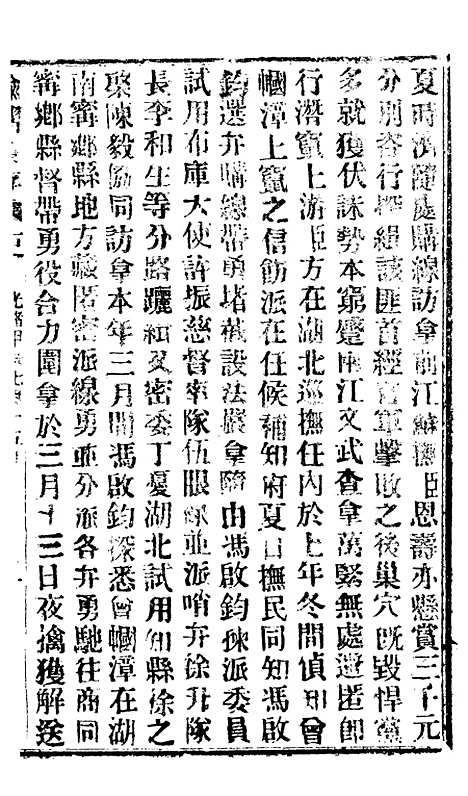 夏時濟隨處購線訪拿前江蘇撫臣恩壽亦懸賞三千元
分別咨行探緝該匪首經官軍擊敗之後巢穴既毀悍黨
多就獲伏誅勢本窮蹙兩江文武查拿萬緊無處遁匿卽
行潛竄上游臣方在湖北巡撫任內於上年冬間偵知曾
幗漳上竄之信飭派在任候補知府夏口撫民同知馮啟
鈞選弁購線帶勇堵截設法嚴拿隨由馮啟鈞揀派委員
試用布庫大使許振慈督率隊伍眼線並派哨弁徐升隊
長李和生等分路躧緝又密委丁憂湖北試用知縣徐之
棨陳毅協同訪拿本年三月間馮啟鈞探悉曾幗漳在湖
南甯鄉縣地方藏匿密派線勇並分派各弁勇馳往商同
甯鄉縣督帶勇役合力圍拿於三月十三日夜擒獲解送
光緒甲